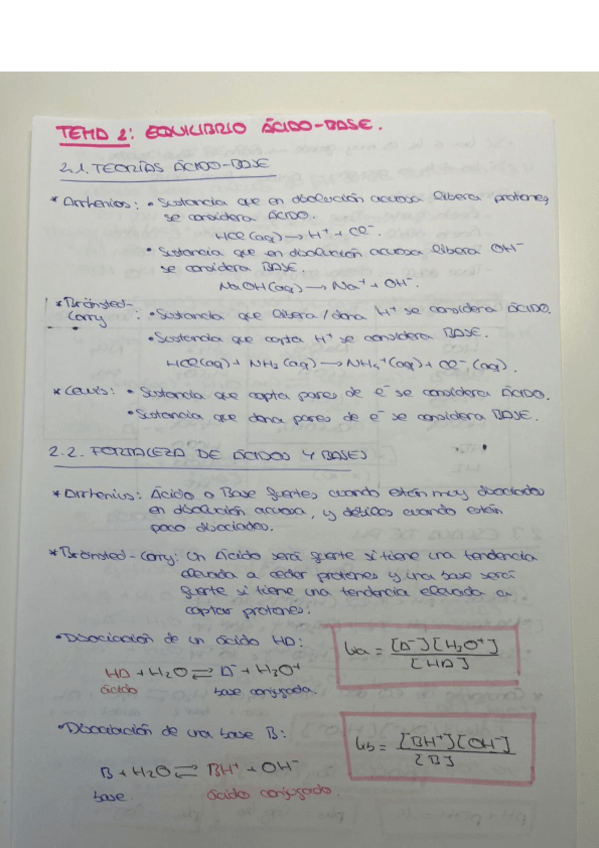 TEMA 2: EQUILIBRIO ÁCIDO-BASE.
2.1. TEORÍAS ÁCIDO-BASE
* Arrhenius: • Sustancia que en disolución acuosa libera protones,
se considera ÁCIDO.
HCl (aq) → H⁺ + Cl⁻.
• Sustancia que en disolución acuosa libera OH⁻
se considera BASE.
NaOH (aq) → Na⁺ + OH⁻.
* Brönsted-
Lowry : • Sustancia que libera/dona H⁺ se considera ÁCIDO.
• Sustancia que capta H⁺ se considera BASE.
HCl(aq) + NH₃ (aq) → NH₄⁺ (aq) + Cl⁻ (aq).
* Lewis: • Sustancia que capta pares de e⁻ se considera ÁCIDO.
• Sustancia que dona pares de e⁻ se considera BASE.
2.2. FORTALEZA DE ÁCIDOS Y BASES
* Arrhenius: Ácido o Base fuertes cuando están muy disociados
en disolución acuosa, y débiles cuando están
poco disociados.
* Brönsted-Lowry: Un Ácido será fuerte si tiene una tendencia
elevada a ceder protones y una base será
fuerte si tiene una tendencia elevada a
captar protones:
• Disociación de un ácido HA:
HA + H₂O ⇌ A⁻ + H₃O⁺
ácido base conjugada.
Ka = [A⁻][H₃O⁺] / [HA]
• Disociación de una base B:
B + H₂O ⇌ BH⁺ + OH⁻
base. ácido conjugado.
Kb = [BH⁺][OH⁻] / [B]